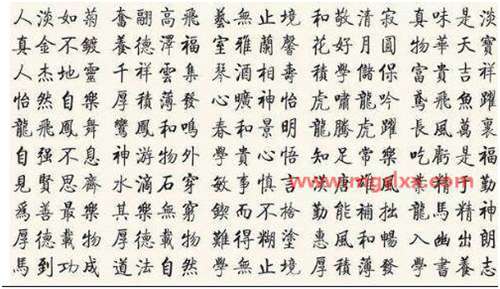 人淡如菊 奮翮高飛 藝無止境 和敬清寂 真味是淡
真金不鍍 養德澤福 室雅蘭馨 花好月圓 物華天寶
人杰地靈 千祥雲集 琴酒相壽 學儲保 富貴吉祥
怡然自樂 厚積薄發 心曠神怡 虎嘯龍吟 鳶飛魚躍
龍飛鳳舞 鸞鳳和鳴 春和景明 龍騰虎躍 長風萬裏
自强不息 神游物外 學貴心悟 知足常樂 吃虧是福
見賢思齊 水滴石穿 敏事慎言
爲善最樂 其樂無窮 鍥而不 勤能補拙 龍馬精神
厚德載物 厚德載物 難得糊塗 惠風和暢 入幽出朗
馬到功成 道法自然 學無止境 厚積薄發 學書養志